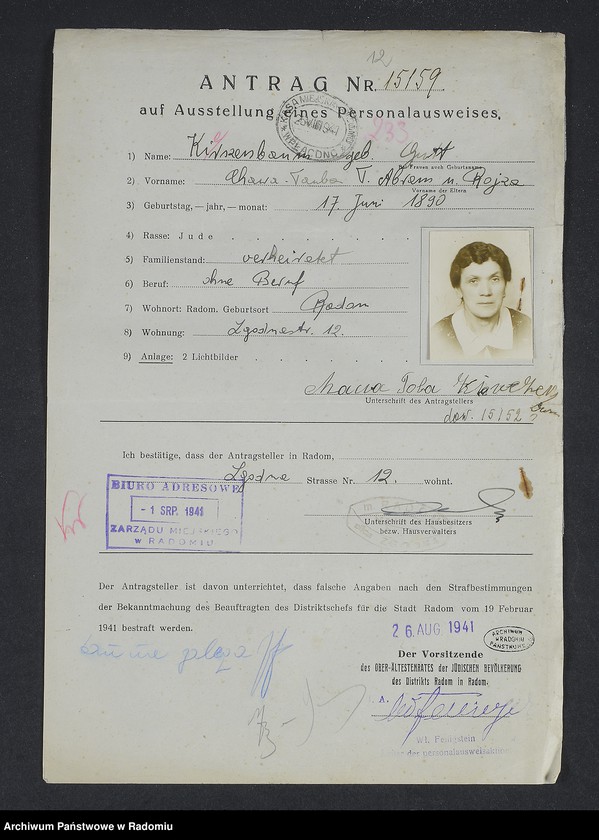 12
ANTRAG NR. 15159
auf Ausstellung eines Personalausweises.
KASA MIEJSKA WPŁACONO
235
1) Name: Kirszenbaum geb. Gutt
bei Frauen auch Geburtsname
2) Vorname: Chawa-Tauba T. Abram u. Rojza
Vorname der Eltern
3) Geburtstag, — jahr, — monat: 17. Juni 1890
4) Rasse: Jude
5) Familienstand: verheiratet
6) Beruf: ohne Beruf
7) Wohnort: Radom. Geburtsort Radom
8) Wohnung: Zgodnastr. 12.
9) Anlage: 2 Lichtbilder
Unterschrift des Antragstellers
dow. 15152
Ich bestätige, dass der Antragsteller in Radom,
Zgodna Strasse Nr. 12. wohnt.
BIURO ADRESOWE
- 1 SRP. 1941
ZARZĄDU MIEJSKIEGO
W RADOMIU
Unterschrift des Hausbesitzers
bezw. Hausverwalters
Der Antragsteller ist davon unterrichtet, dass falsche Angaben nach den Strafbestimmungen
der Bekanntmachung des Beauftragten des Distriktschefs für die Stadt Radom vom 19 Februar
1941 bestraft werden.
26. AUG. 1941
ARCHIWUM PAŃSTWOWE w RADOMIU
Der Vorsitzende
des OBER-ÄLTESTENRATES der JÜDISCHEN BEVÖLKERUNG
des Distrikts Radom in Radom.
I. A.
Wł. Fenigstein
Leiter der Personalausweisstelle
Archiwum Państwowe w Radomiu